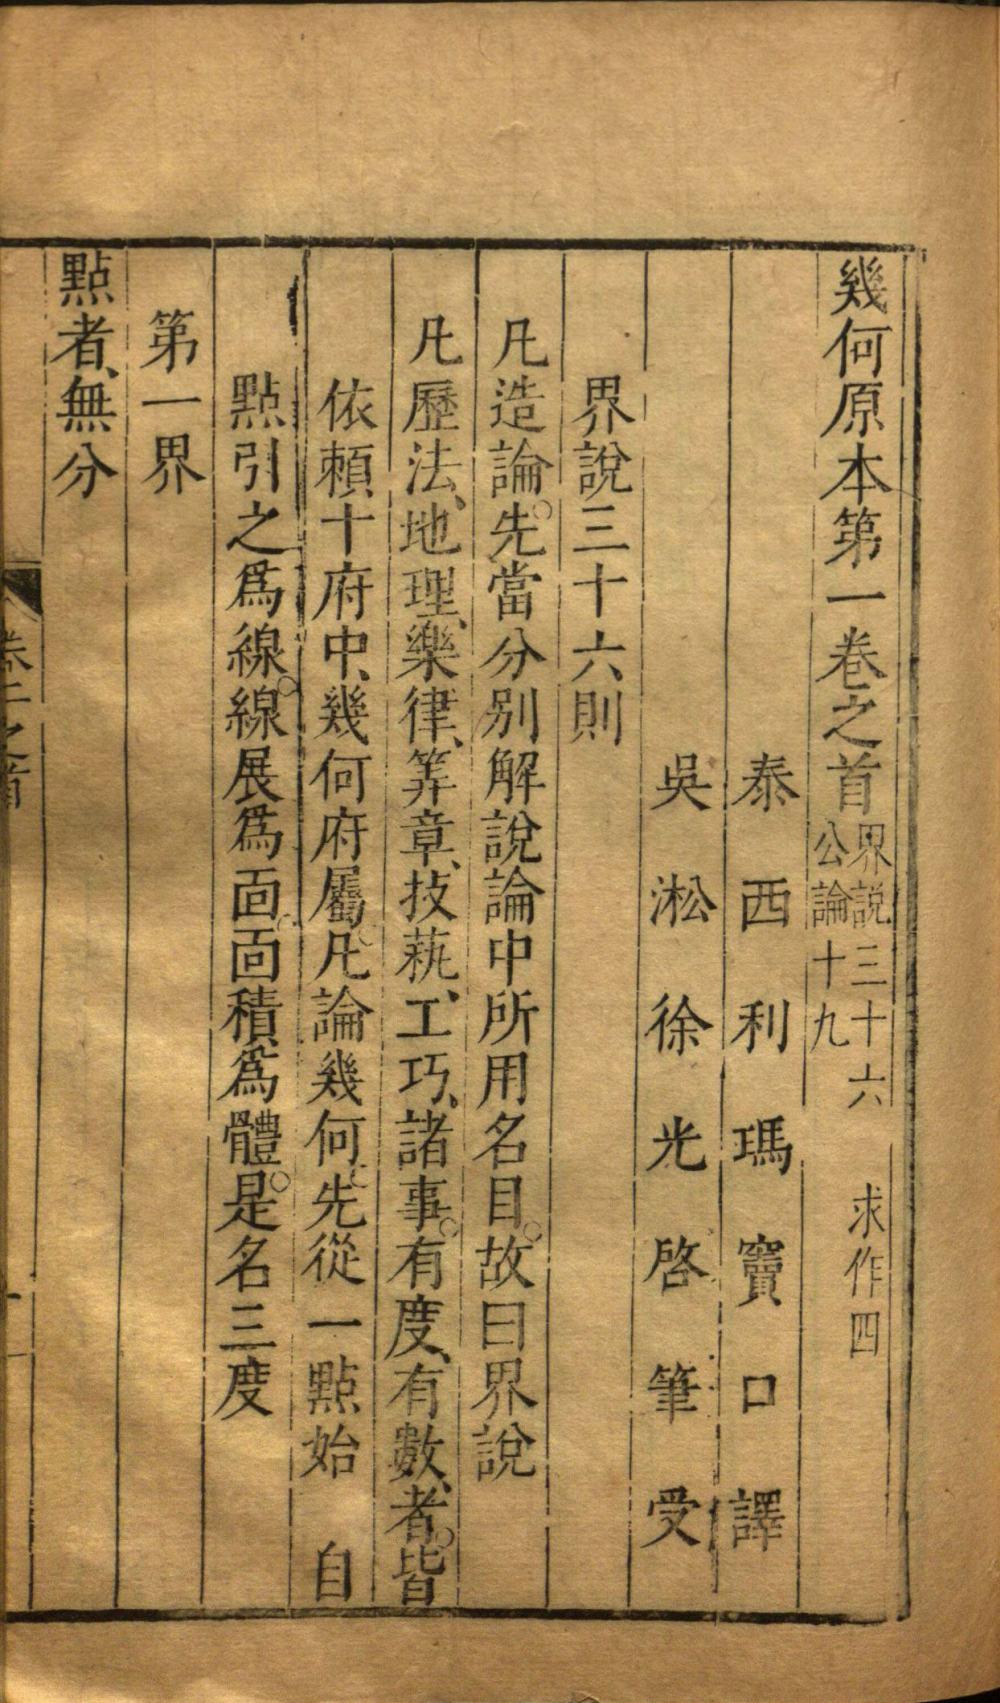 幾何原本第一卷之首 界說三十六 求作四
公論十九
泰西利瑪竇口譯
吳淞徐光啓筆受
界說三十六則
凡造論。先當分別解說論中所用名目。故曰界說
凡歷法、地理、樂律、筭章、技藝、工巧、諸事。有度、有數、者。皆
依賴、十府中、幾何府屬。凡論幾何。先從一點始 自
點引之爲線。線展爲面。面積爲體。是名三度
第一界
點者、無分
之首